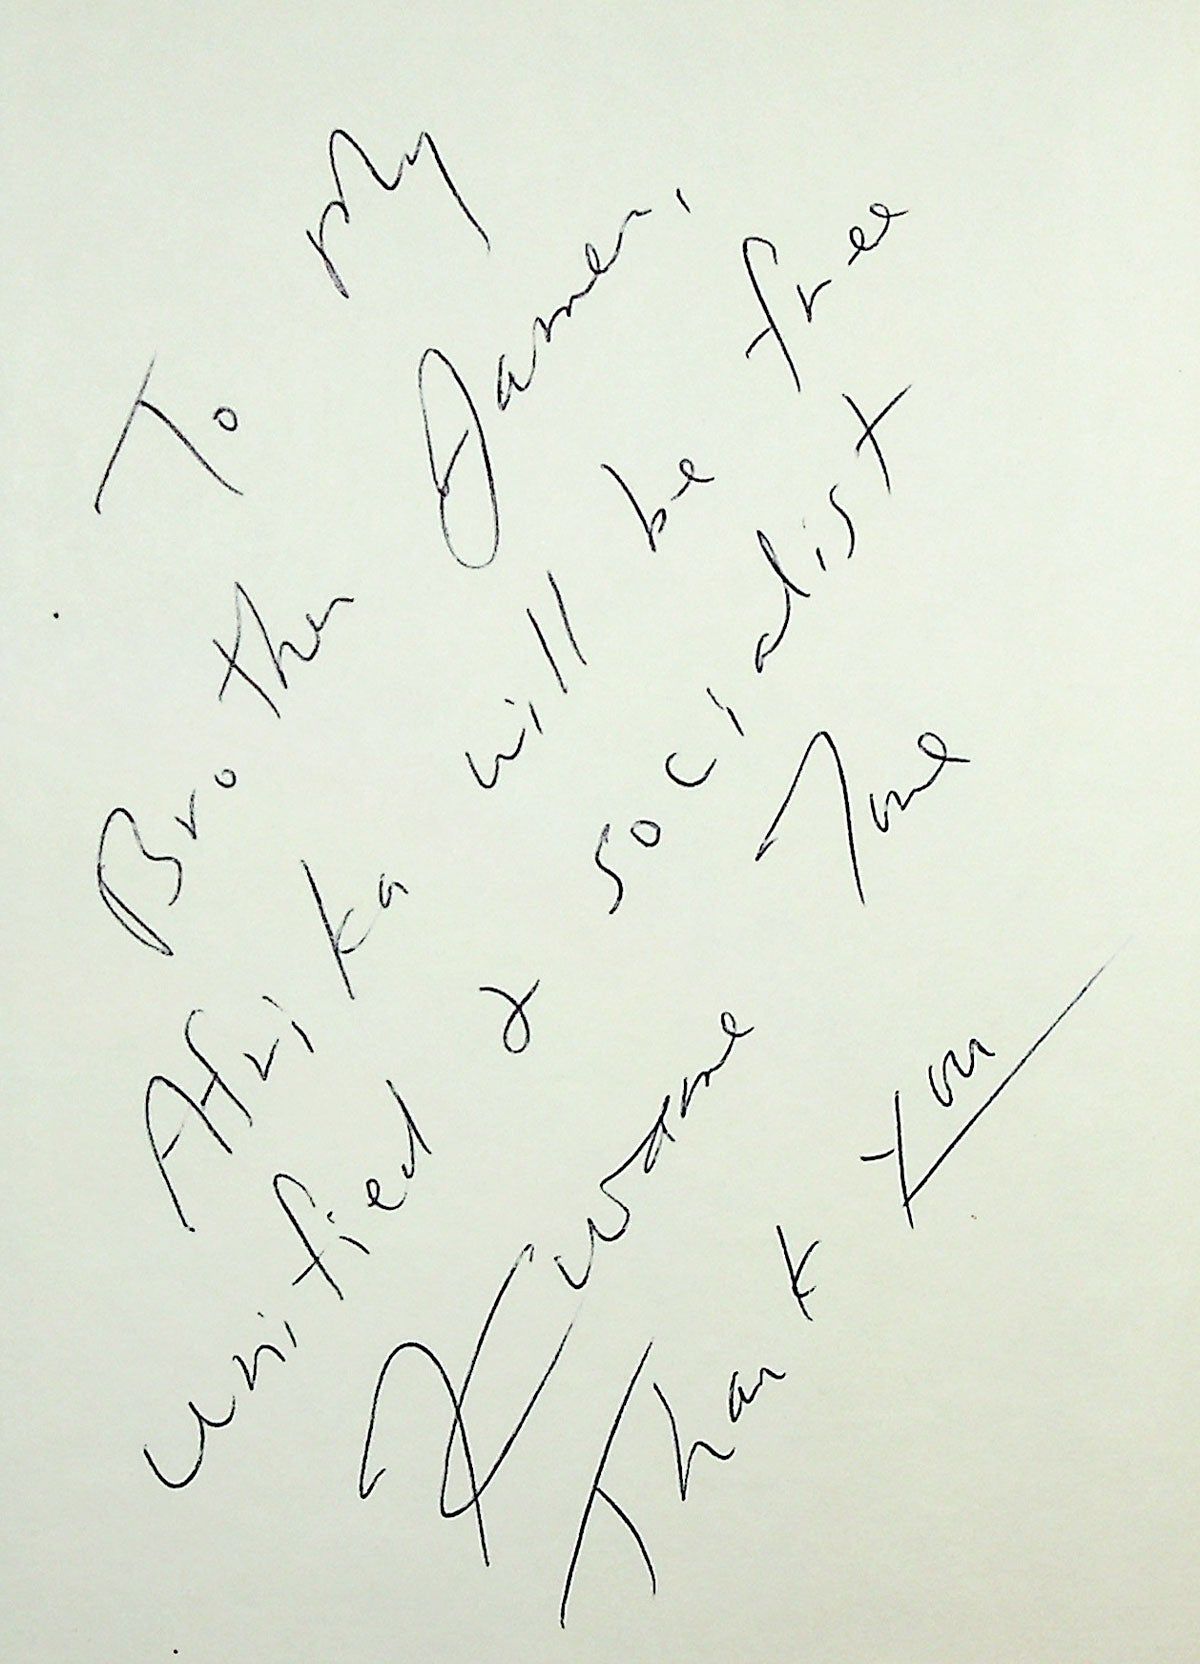 To My
Brother
Afrika will be free
unified & socialist
Kwame Ture
Thank You